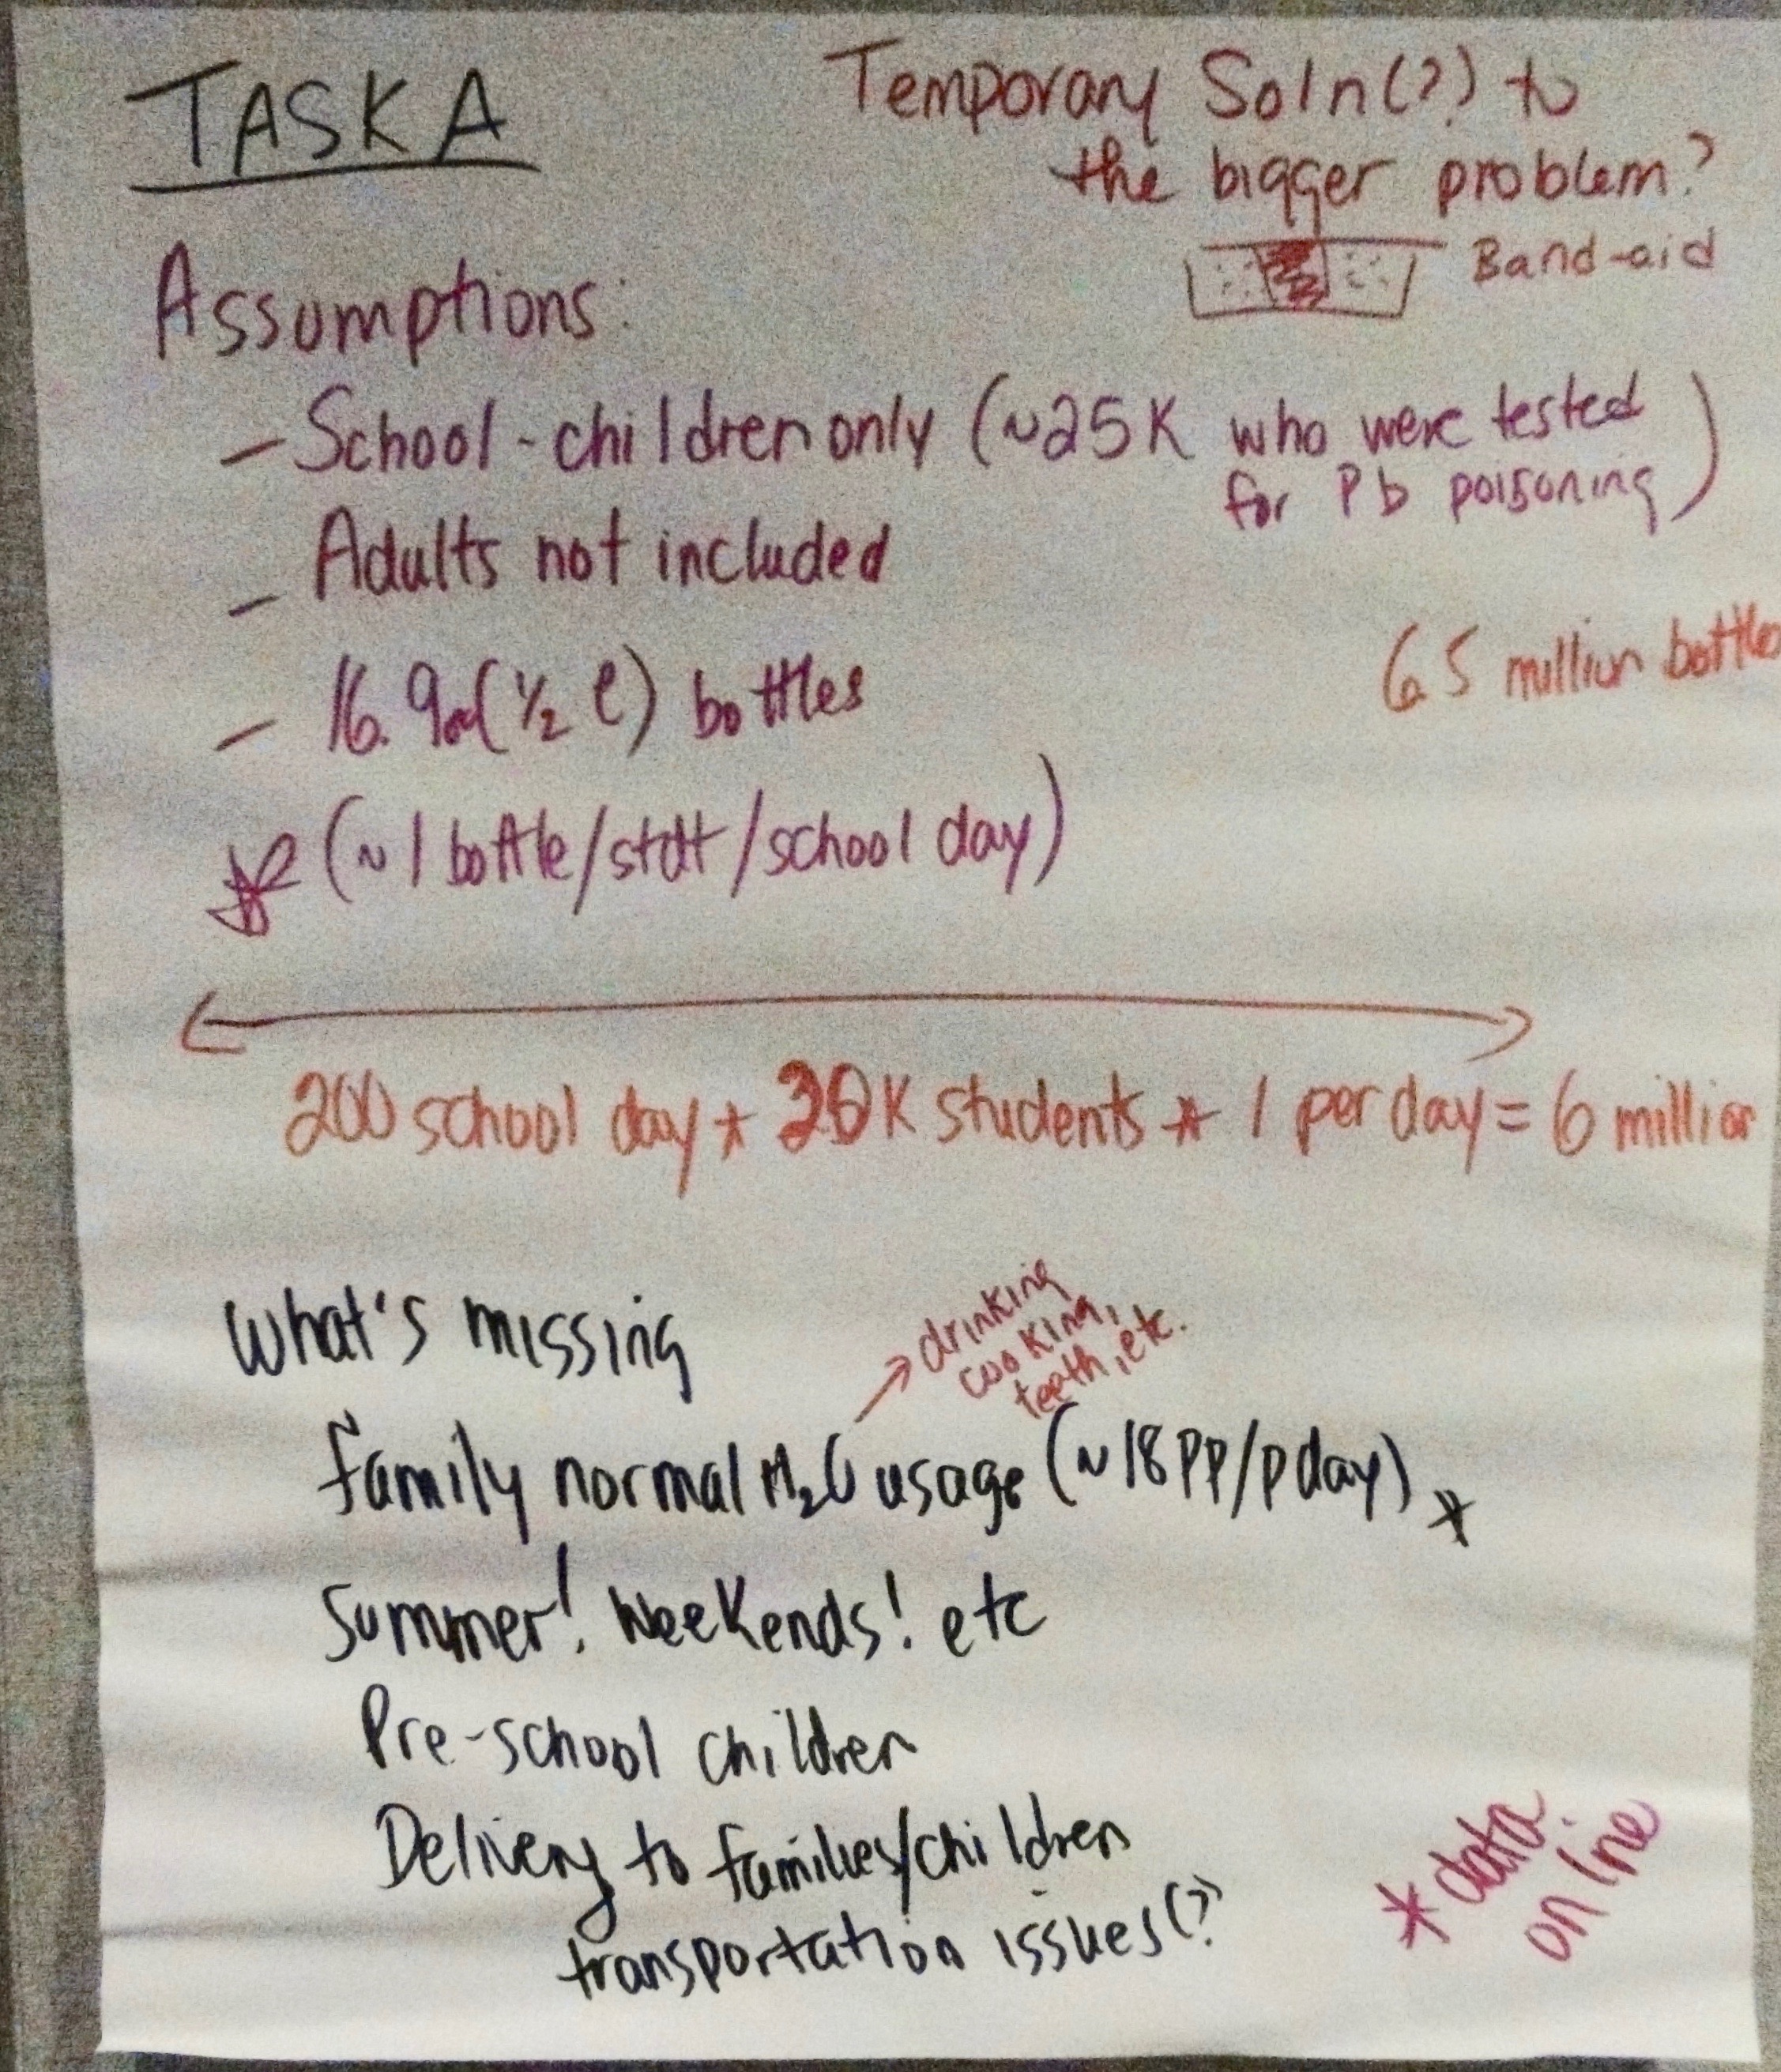 TASK A
Temporary Soln(?) to
the bigger problem?
Band-aid
Assumptions:
- School-children only (~25K who were tested
for Pb poisoning)
- Adults not included
6.5 million bottles
- 16.9oz(½ l) bottles
* (~1 bottle/stdt/school day)
200 school day * 30K students * 1 per day = 6 million
What's missing
→ drinking
cooking,
teeth, etc.
family normal H₂O usage (~18 pp/p day) *
Summer! Weekends! etc
Pre-school children
Delivery to families/children
transportation issues(?)
* data
on line